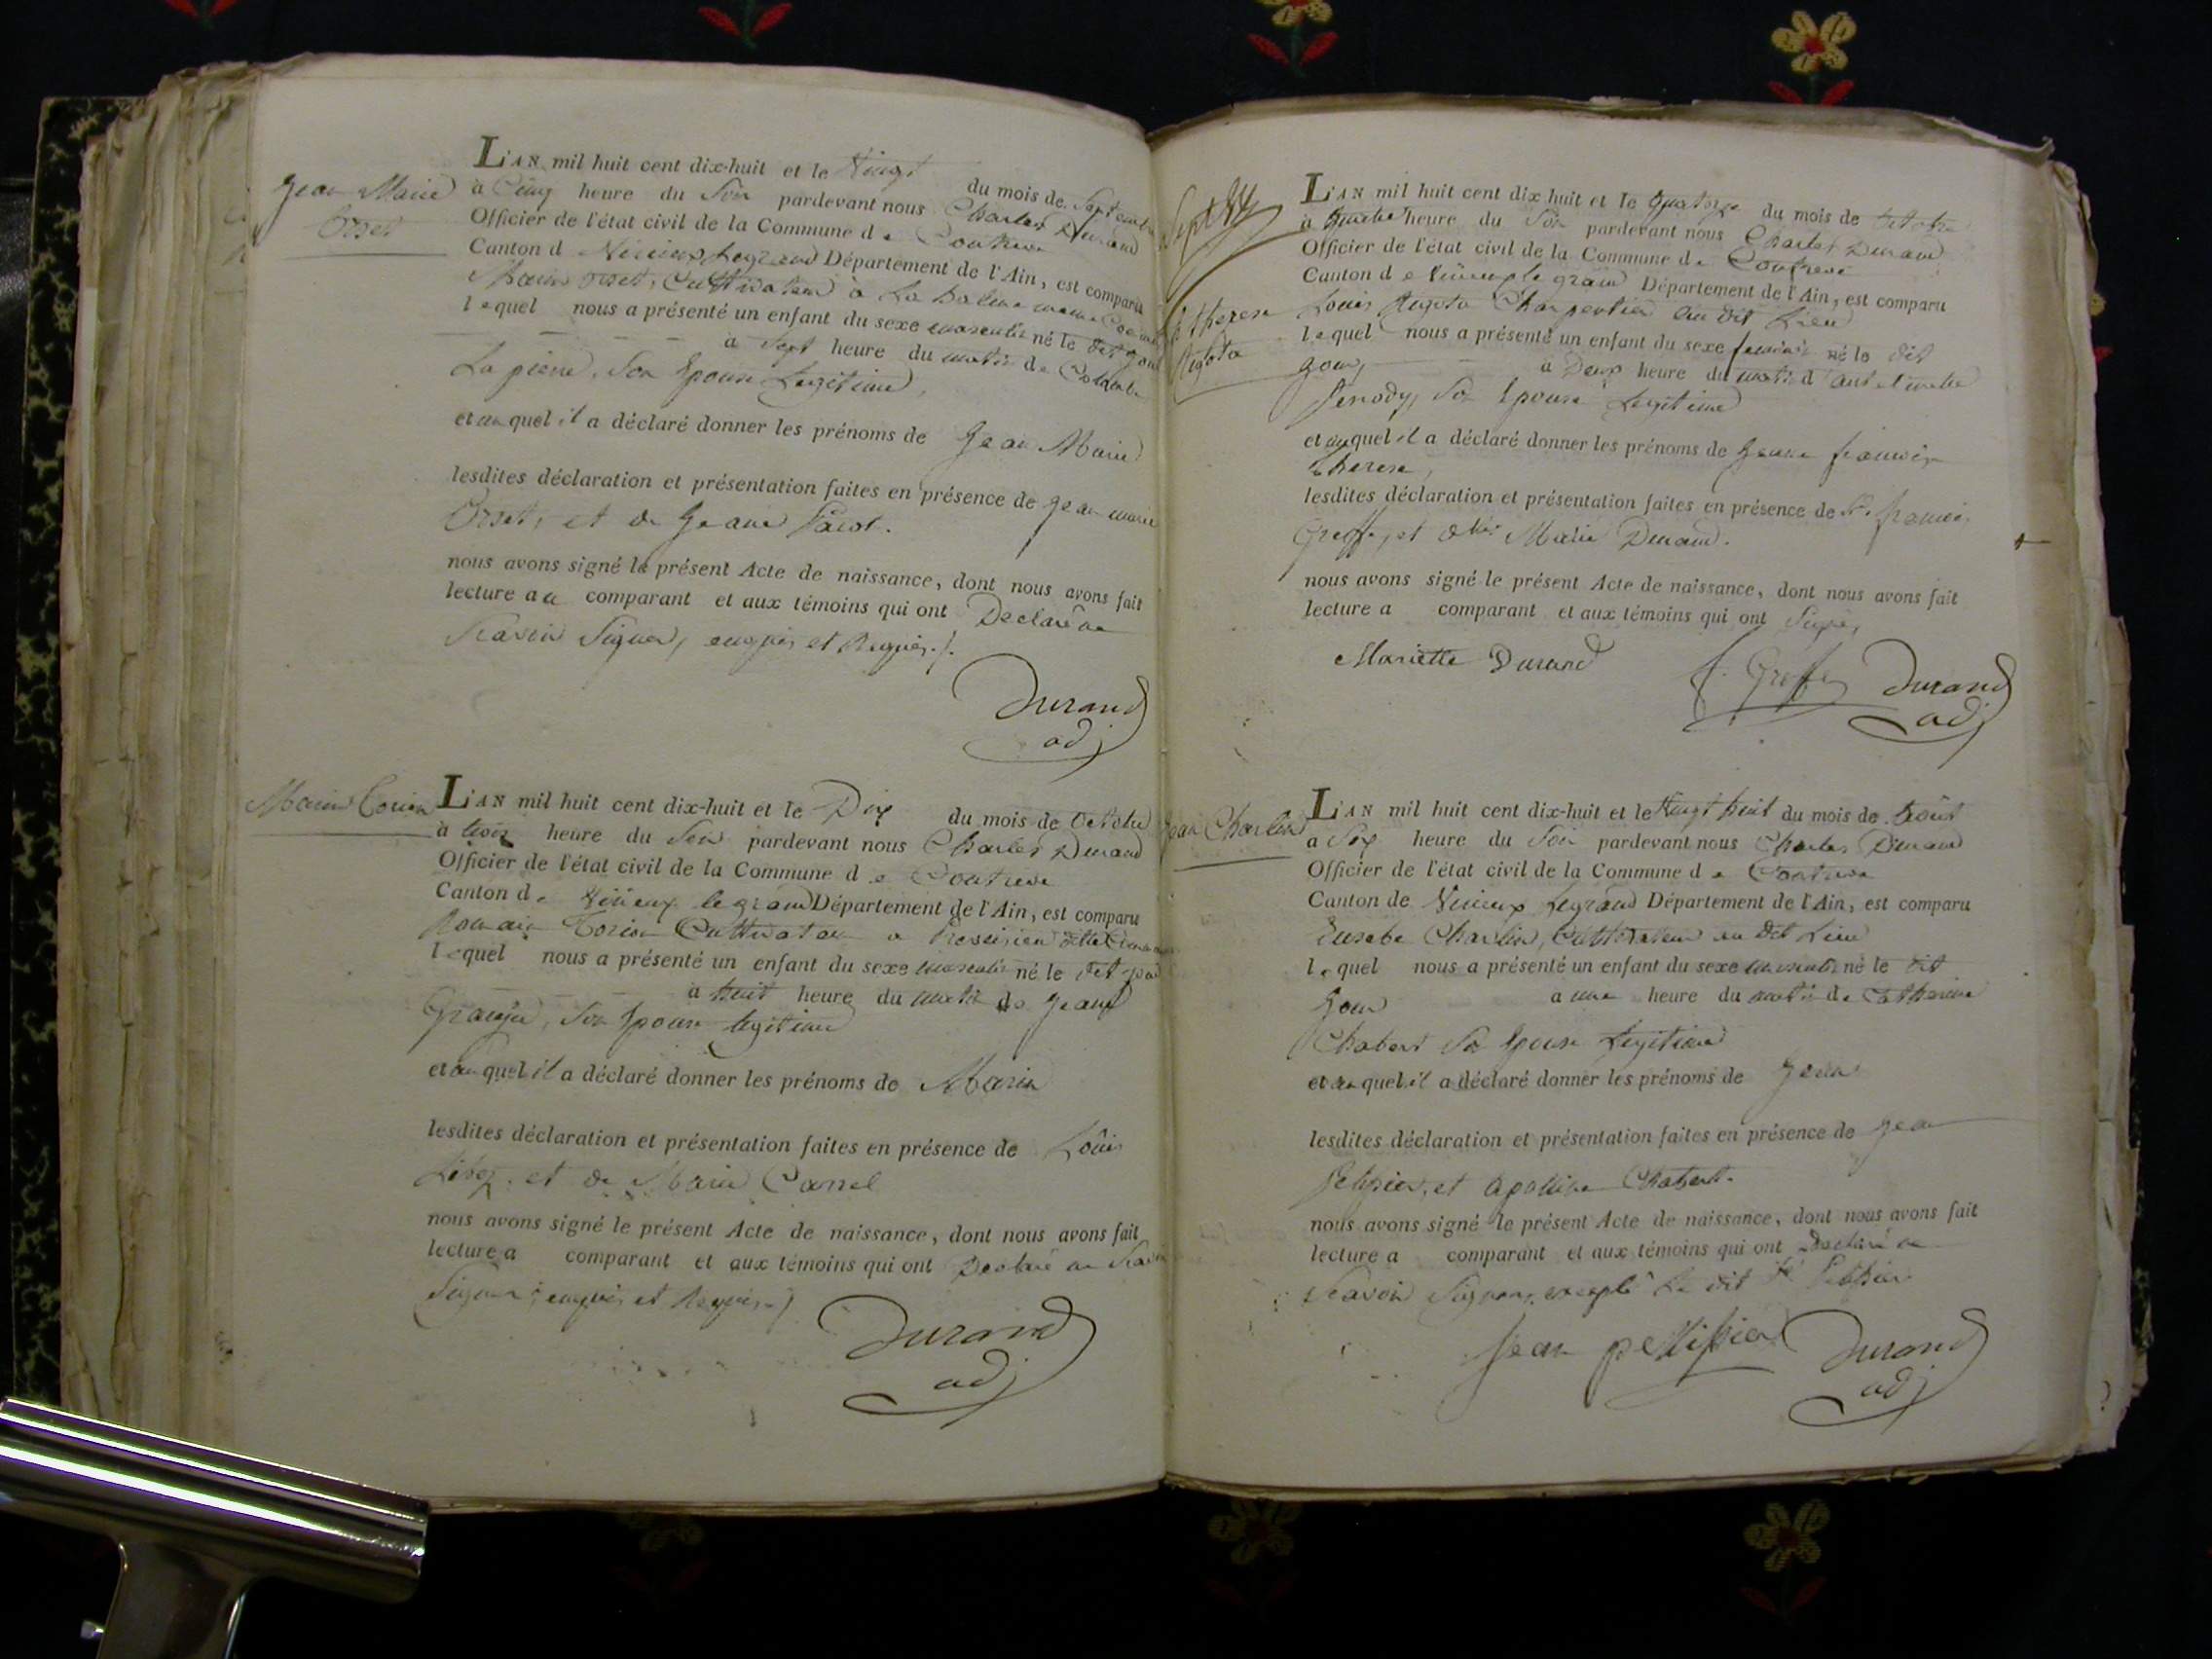 Jean Marie
Orset
L'AN mil huit cent dix-huit et le Vingt du mois de Septembre
à Cinq heure du Soir pardevant nous Charles Durand
Officier de l'état civil de la Commune de Contrevoz
Canton de Virieux Legrand Département de l'Ain, est comparu
Marin Orset, Cultivateur à La Balme meme
lequel nous a présenté un enfant du sexe masculin né le dit jour
à Sept heure du matin de Colombe
La pierre, Son Epouse Legitime,
et auquel il a déclaré donner les prénoms de Jean Marie
lesdites déclaration et présentation faites en présence de Jean marie
Orset, et de Jeane
nous avons signé le présent Acte de naissance, dont nous avons fait
lecture au comparant et aux témoins qui ont Declaré ne
Scavoir Signer, enquis et Requis./.
Durand
adj
Marin Torion
L'AN mil huit cent dix-huit et le Dix du mois de Octobre
à trois heure du Soir pardevant nous Charles Durand
Officier de l'état civil de la Commune de Contrevoz
Canton de Virieux legrand Département de l'Ain, est comparu
Romain Torion Cultivateur a
lequel nous a présenté un enfant du sexe masculin né le dit jour
à huit heure du matin de Jeane
Son Epouse legitime
et auquel il a déclaré donner les prénoms de Marin
lesdites déclaration et présentation faites en présence de Loüis
et de Marie Carrel
nous avons signé le présent Acte de naissance, dont nous avons fait
lecture a comparant et aux témoins qui ont Declaré ne Scavoir
Signer, enquis et Requis./
Durand
adj
therese
L'AN mil huit cent dix huit et le quatorze du mois de octobre
à quatre heure du Soir pardevant nous Charles Durand
Officier de l'état civil de la Commune de Contrevoz
Canton de Virieux le grand Département de l'Ain, est comparu
Louis Charpentier au dit Lieu
lequel nous a présenté un enfant du sexe feminin né le dit
jour, à Deux heure du matin d'antelmette
Jenody, Son Epouse Legitime
et auquel il a déclaré donner les prénoms de Jeanne françoise
therese,
lesdites déclaration et présentation faites en présence de Sr. françois
Greffe, et de Marie Durand.
nous avons signé le présent Acte de naissance, dont nous avons fait
lecture a comparant et aux témoins qui ont Signé,
Mariette Durand
f. Greffe Durand
adj
Jean Charlin
L'AN mil huit cent dix-huit et le Vingt huit du mois de Août
à Six heure du Soir pardevant nous Charles Durand
Officier de l'état civil de la Commune de Contrevoz
Canton de Virieux Legrand Département de l'Ain, est comparu
Eusebe Charlin, Cultivateur au Dit Lieu
lequel nous a présenté un enfant du sexe masculin né le dit
Jour à une heure du matin de Catherine
Chabert Son Epouse Legitime
et auquel il a déclaré donner les prénoms de Jean
lesdites déclaration et présentation faites en présence de Jean
Petipier, et Apolline Chabert.
nous avons signé le présent Acte de naissance, dont nous avons fait
lecture a comparant et aux témoins qui ont Declaré ne
Scavoir Signer, excepté Le dit Sr
Jean Durand
adj